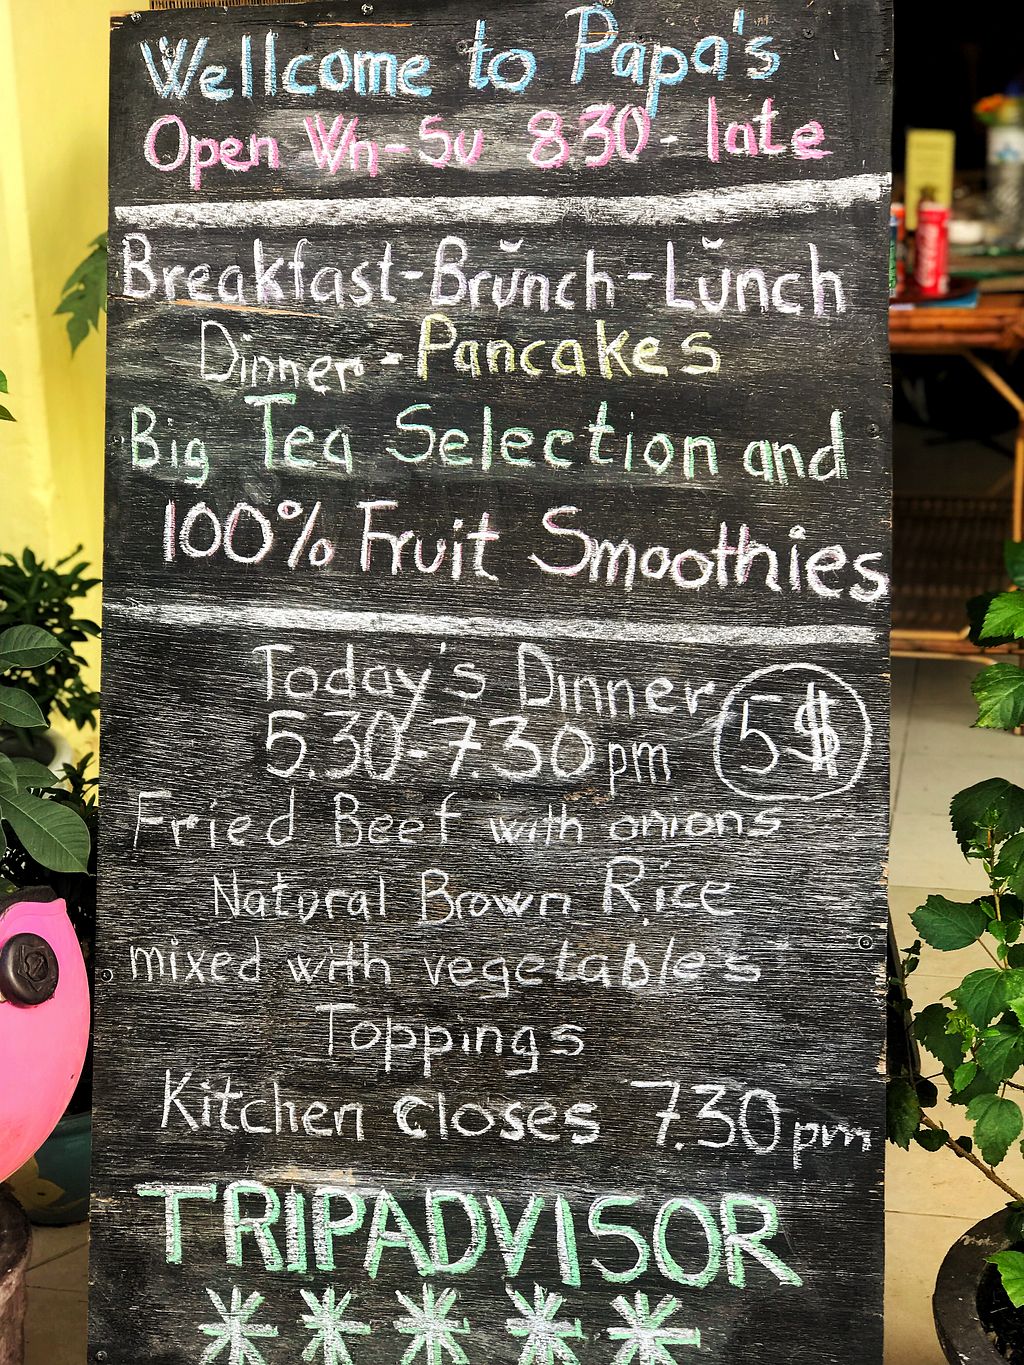 Wellcome to Papa's
Open Wh-Su 8.30 - late
Breakfast-Brŭnch-Lŭnch
Dinner-Pancakes
Big Tea Selection and
100% Fruit Smoothies
Today's Dinner
5.30-7.30pm 5$
Fried Beef with onions
Natural Brown Rice
mixed with vegetable's
Toppings
Kitchen closes 7.30 pm
TRIPADVISOR
*****